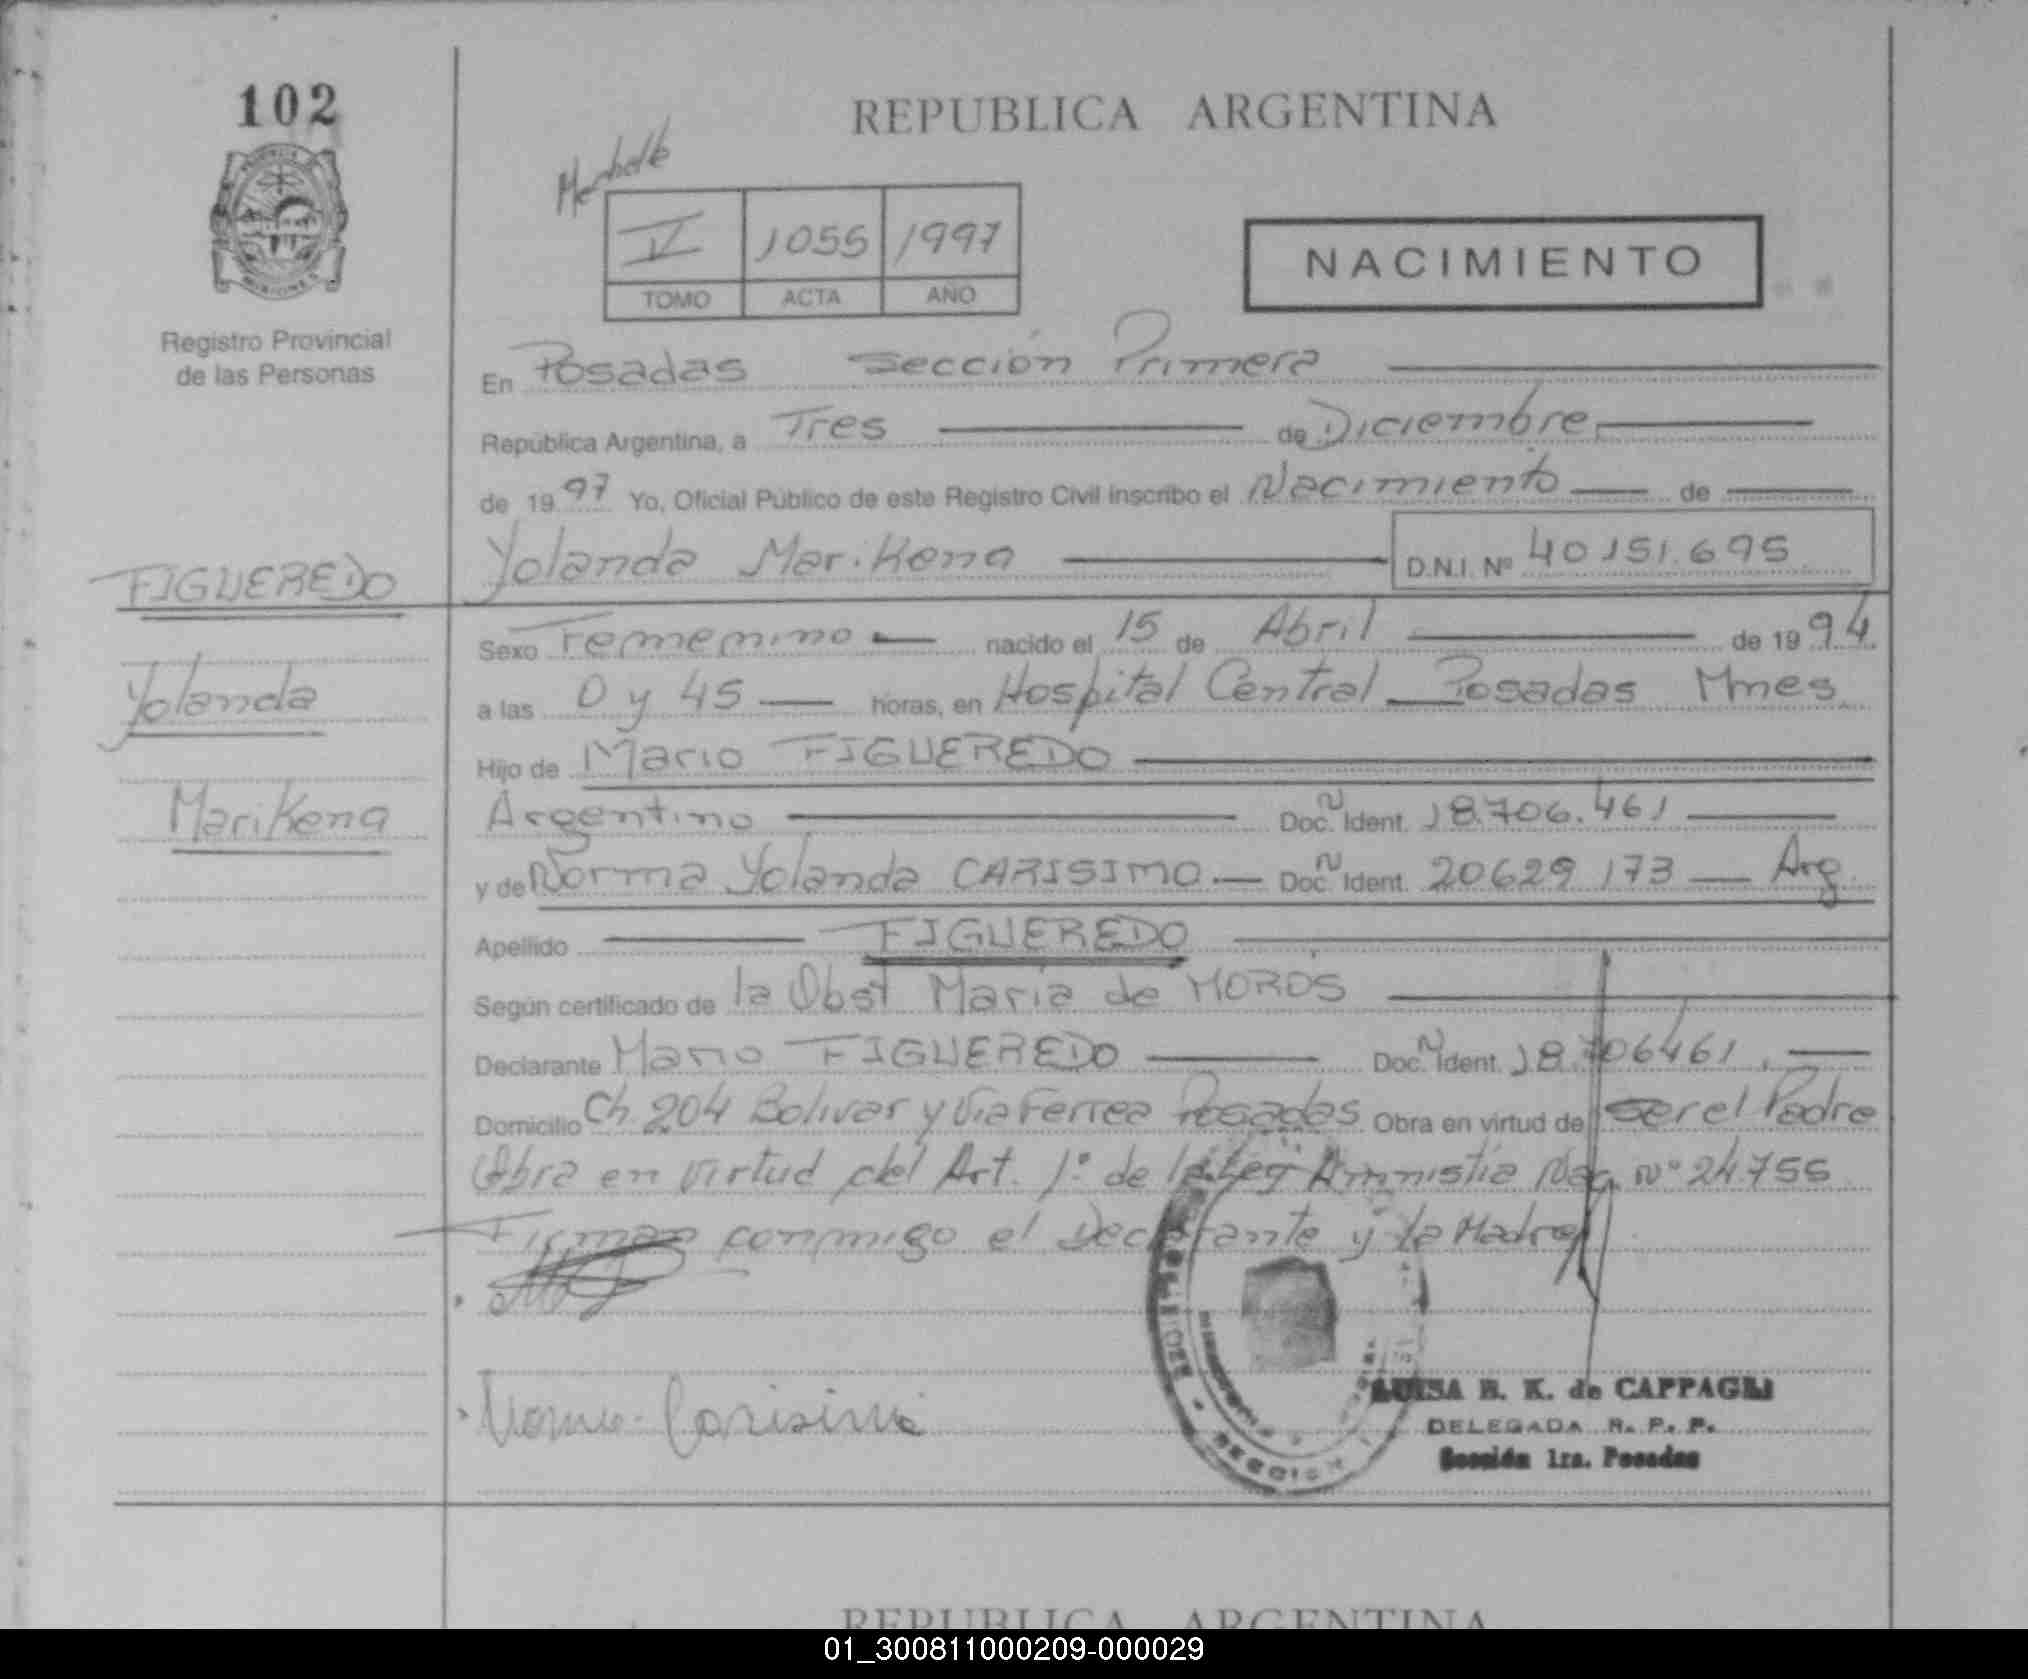 102
REPUBLICA ARGENTINA
V 1055 1997
TOMO ACTA AÑO
NACIMIENTO
Registro Provincial
de las Personas
En Posadas Sección Primera
República Argentina, a Tres de Diciembre
de 1997 Yo, Oficial Público de este Registro Civil inscribo el Nacimiento de
Yolanda Marikena D.N.I. Nº 40151.695
FIGUEREDO
Yolanda
Marikena
Sexo Femenino nacido el 15 de Abril de 1994.
a las 0 y 45 horas, en Hospital Central Posadas Mnes
Hijo de Mario FIGUEREDO
Argentino Doc. N Ident. 18.706.461
y de Norma Yolanda CARISIMO Doc. N Ident. 20629173 Arg.
Apellido FIGUEREDO
Según certificado de la Obst Maria de MOROS
Declarante Mario FIGUEREDO Doc. N Ident. 18.706461.
Domicilio Ch 204 Bolivar y Via Ferrea Posadas Obra en virtud de Ser el Padre
Obra en virtud del Art. 1º de la Ley Amnistia Nac. Nº 24.755
Firman conmigo el Declarante y la Madre
Norma Carisimo
LUISA B. K. de CAPPAGLI
DELEGADA R. P. P.
Sección 1ra. Posadas
REPUBLICA ARGENTINA
01_300811000209-000029